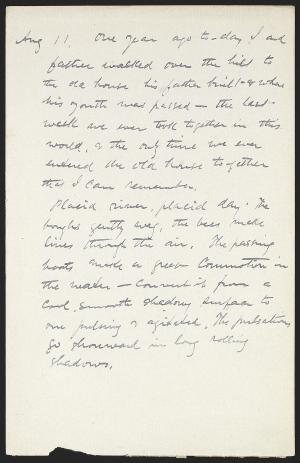 Aug 11. One year ago to-day I and
father walked over the hill to
the old house his father built & where
his youth was passed — the last
walk we ever took together in this
world, & the only time we ever
entered the old house together
that I can remember.
Placid river, placid day. The
boughs gently sway, the bees make
lines through the air. The passing
boats make a great commotion in
the water — convert it from a
cool, smooth shadowy surface to
one pulsing & agitated. The pulsations
go shoreward in long rolling
shadows.